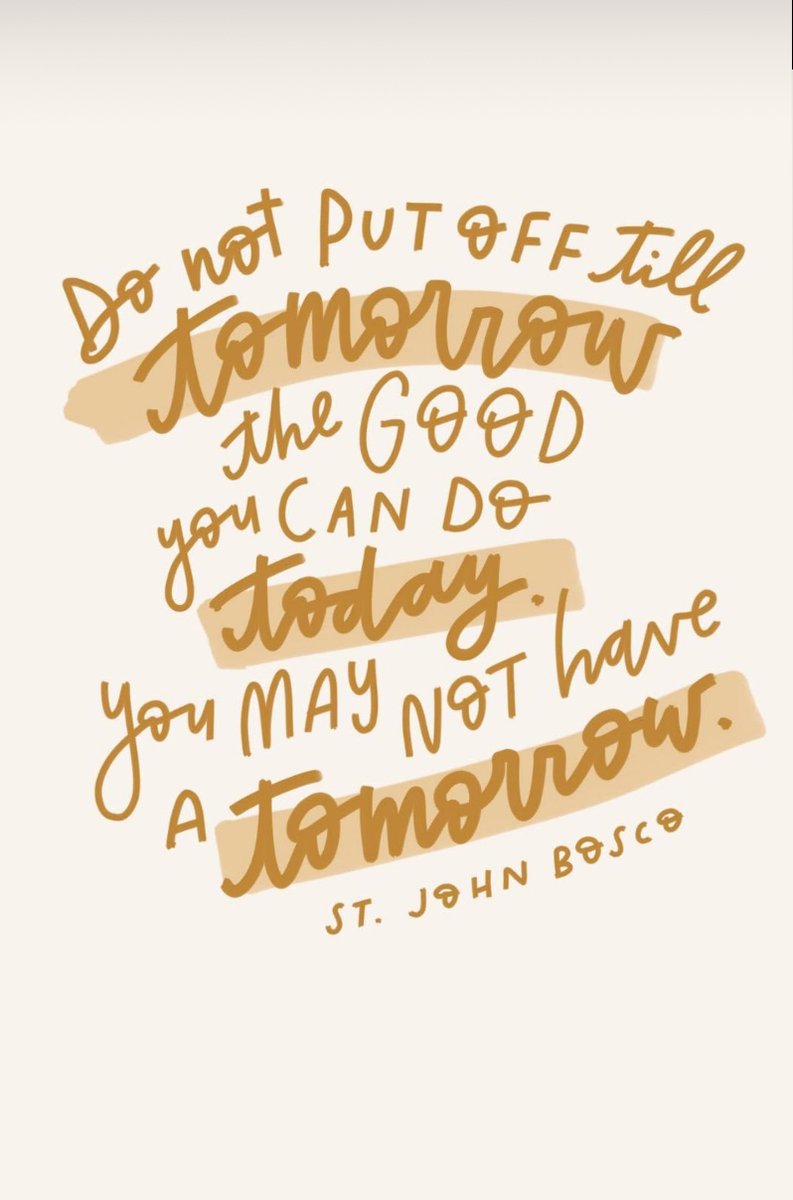 Do not PUT OFF till
tomorrow
the GOOD
you CAN DO
today.
you MAY NOT have
A tomorrow.
ST. JOHN BOSCO